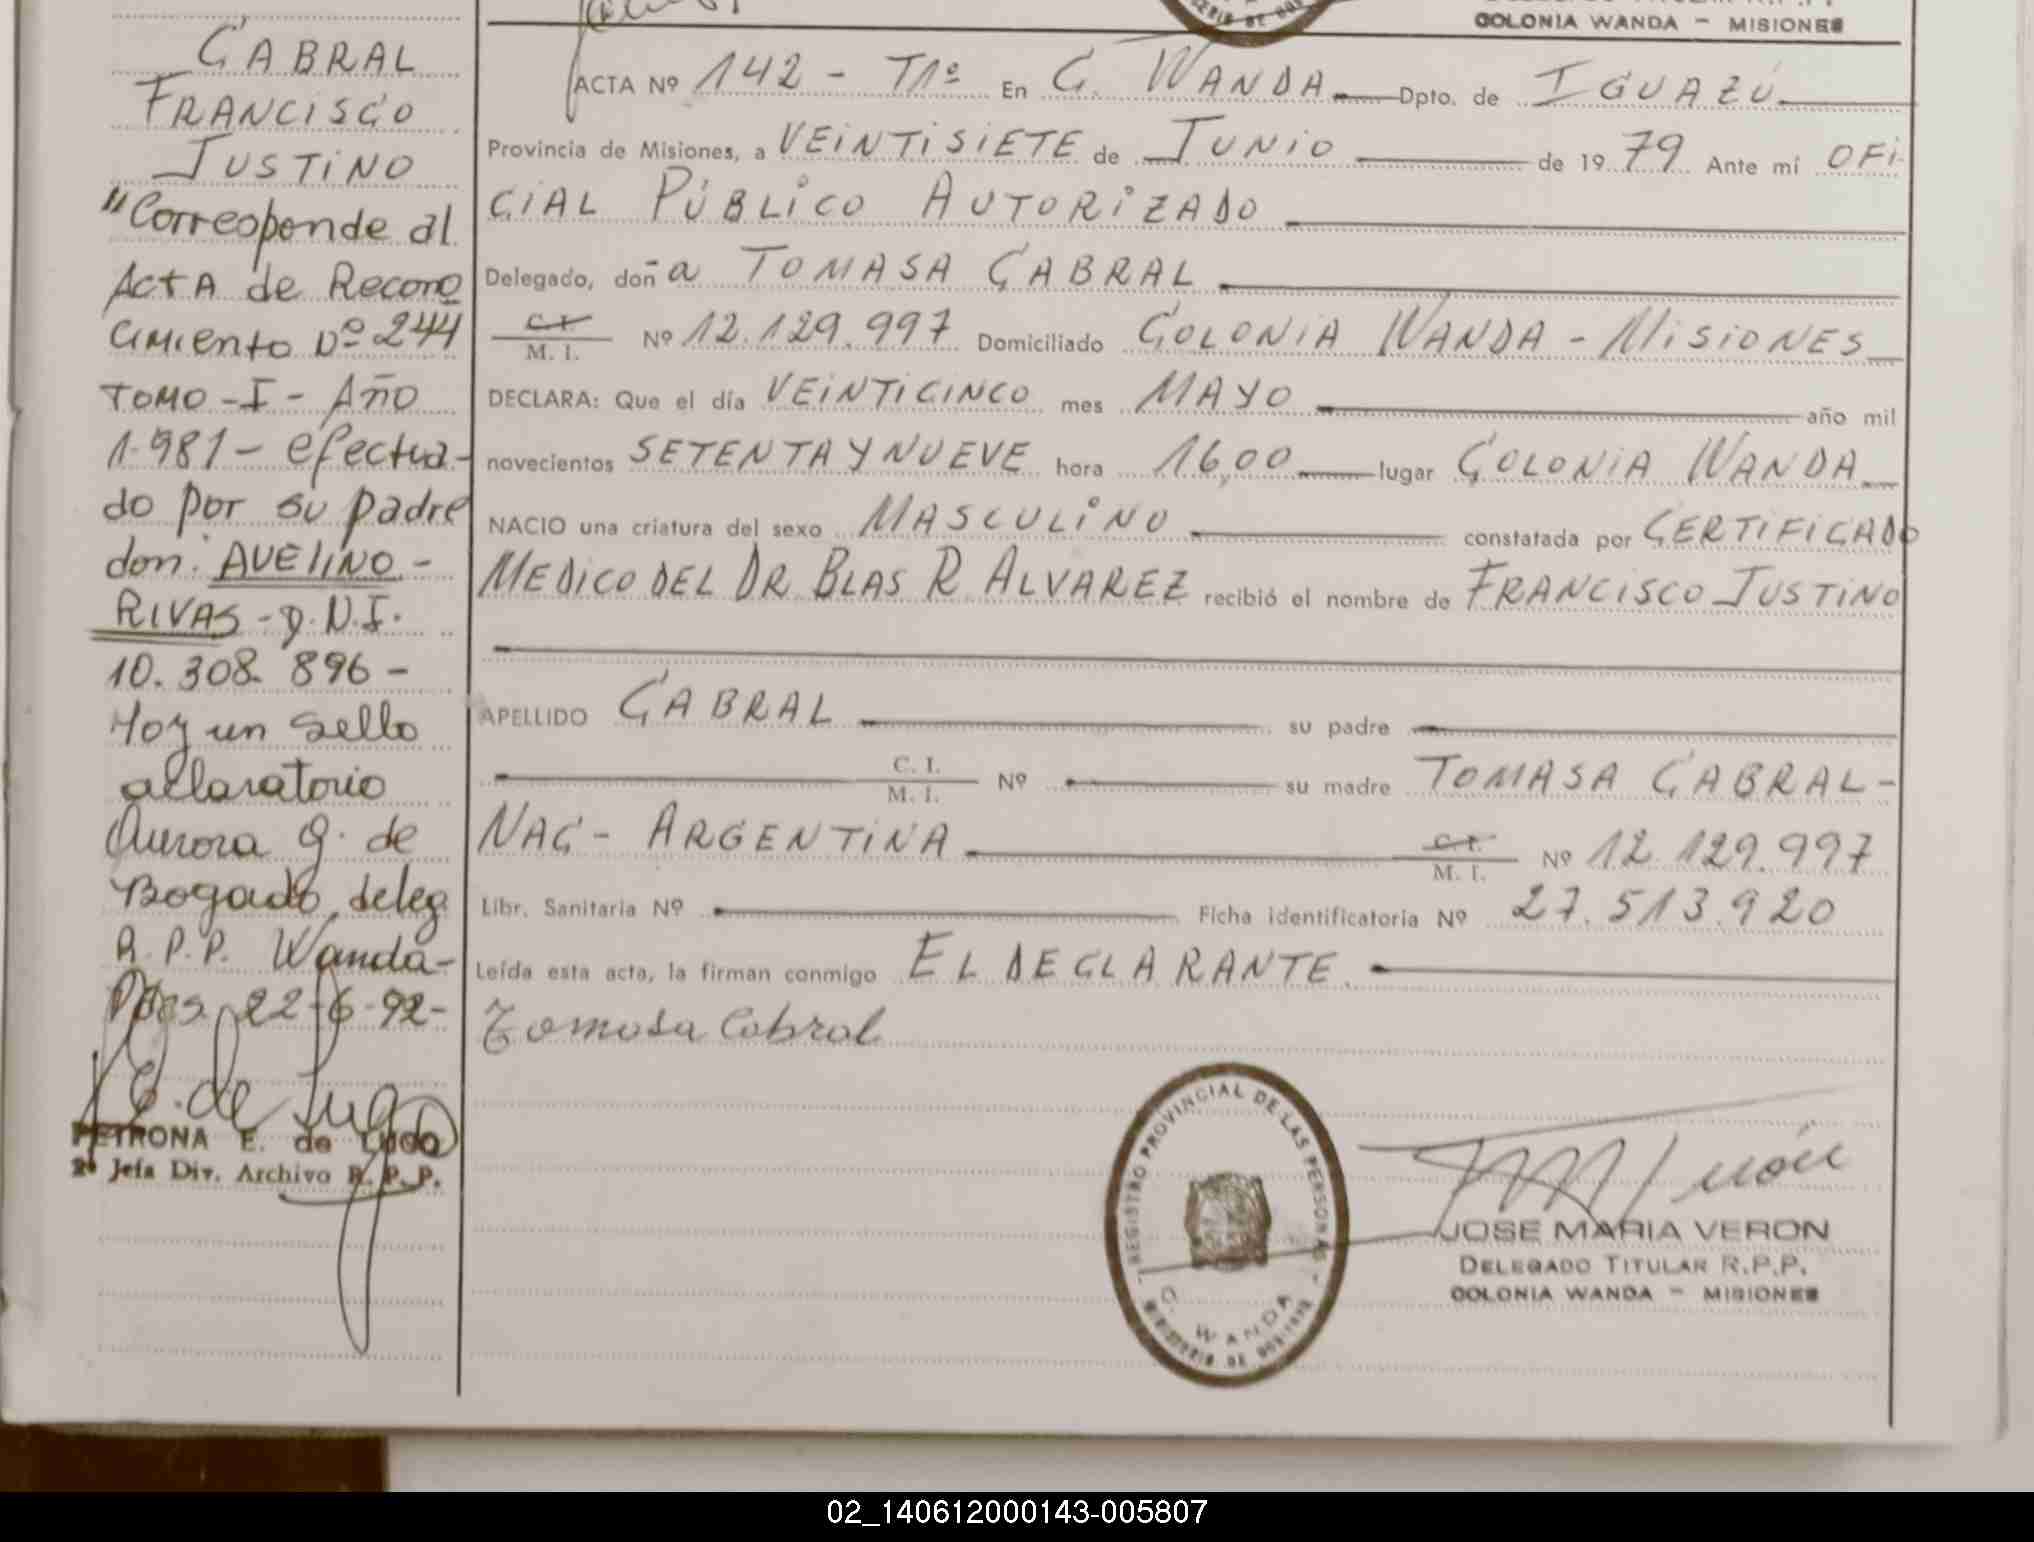 COLONIA WANDA - MISIONES
CABRAL
FRANCISCO
JUSTINO
"Corresponde al
Acta de Recono
cimiento Nº 244
TOMO - I - Año
1.981 - efectua-
do por su padre
don: AVELINO -
RIVAS - D.N.I.
10.308.896 -
Hay un sello
aclaratorio
Aurora G. de
Bogado, deleg
R.P.P. Wanda-
Pdas. 22-6-92-
E. de Lugo
PETRONA E. de LUGO
2ª Jefa Div. Archivo R. P. P.
ACTA Nº 142 - T1º En C. WANDA Dpto. de IGUAZÚ
Provincia de Misiones, a VEINTISIETE de JUNIO de 1979 Ante mí OFI-
CIAL PÚBLICO AUTORIZADO
Delegado, doña TOMASA CABRAL
C.I. / M. I. Nº 12.129.997 Domiciliado COLONIA WANDA - MISIONES
DECLARA: Que el día VEINTICINCO mes MAYO año mil
novecientos SETENTA Y NUEVE hora 16,00 lugar COLONIA WANDA
NACIO una criatura del sexo MASCULINO constatada por CERTIFICADO
MEDICO DEL DR BLAS R ALVAREZ recibió el nombre de FRANCISCO JUSTINO
APELLIDO CABRAL su padre
C. I. / M. I. Nº su madre TOMASA CABRAL-
NAC- ARGENTINA C.I. / M. I. Nº 12.129.997
Libr. Sanitaria Nº Ficha identificatoria Nº 27.513.920
Leída esta acta, la firman conmigo EL DECLARANTE.
Tomasa Cabral
REGISTRO PROVINCIAL DE LAS PERSONAS
C. WANDA
MINISTERIO DE GOBIERNO
JOSE MARIA VERON
DELEGADO TITULAR R.P.P.
COLONIA WANDA - MISIONES
02_140612000143-005807